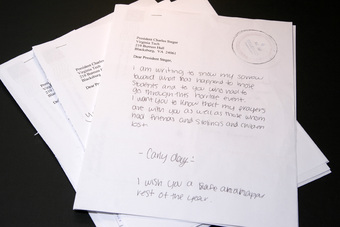 President Charles Steger
Virginia Tech
210 Burruss Hall
Blacksburg, VA 24061
Dear President Steger,
I am writing to show my sorrow
toward what has happened to these
students and to you who have to
go through this horrible event.
I want you to know that my prayers
are with you as well as those whom
had friends and siblings and children
lost.
I wish you a safe and happy
rest of the year
President Charles Steger
Virginia Tech
210 Burruss Hall
Blacksburg,
Dear
President Charles
Virginia Tech